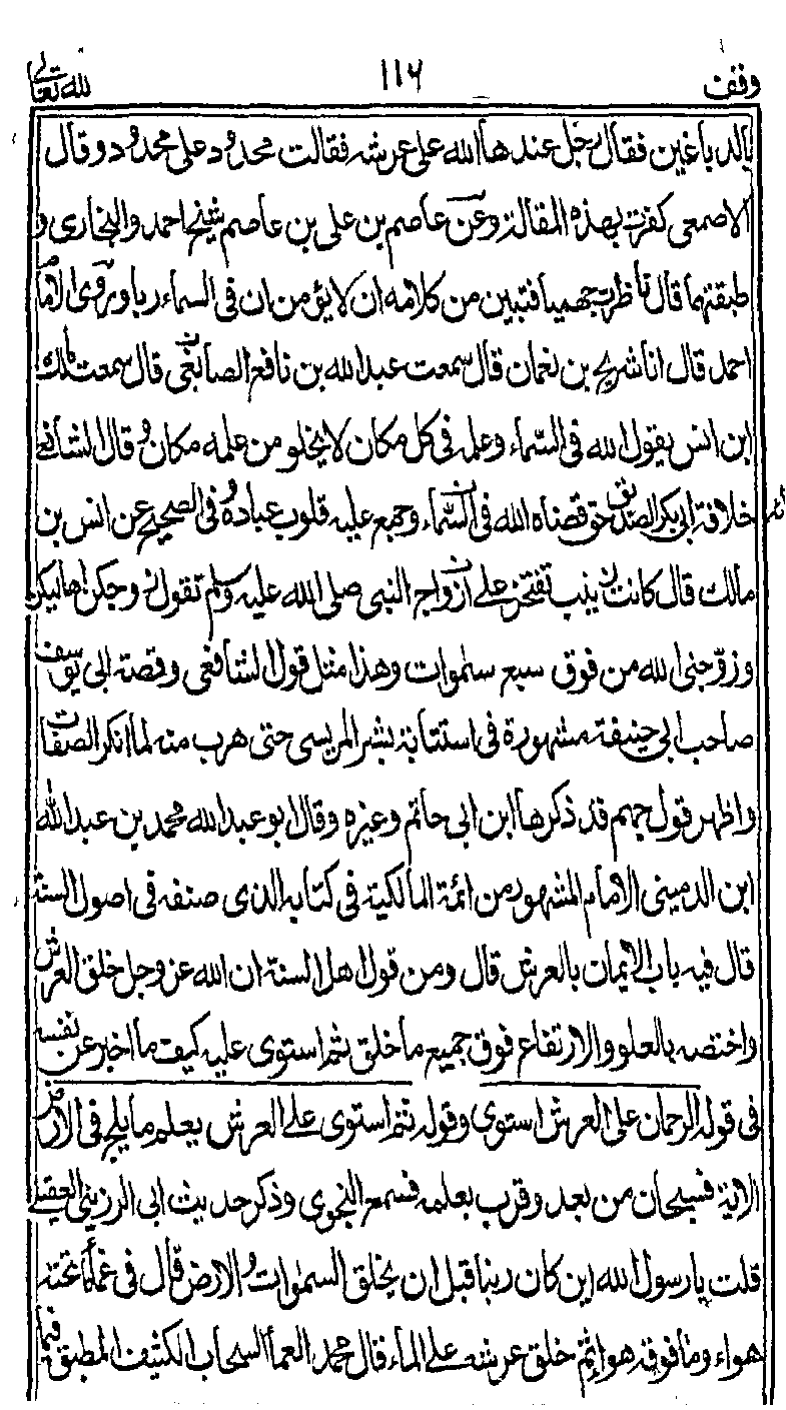 وقف ١١٦ لله تعالى
بالدباغين فقال رجل عندها الله على عرشه فقالت محدود على محدود وقال
الاصمعى كفرت بهذه المقالة وعن عاصم بن على بن عاصم شيخ احمد والبخارى و
طبقتهما قال ناظرت جهميا فتبين من كلامه ان لا يؤمن ان فى السماء ربا وروى الامام
احمد قال انا شريح بن نعمان قال سمعت عبد الله بن نافع الصائغى قال سمعت مالك
ابن انس يقول الله فى السماء وعلمه فى كل مكان لا يخلو من علمه مكان وقال الشافعى
خلافة ابى بكر الصديق حق قضاه الله فى السماء وجمع عليه قلوب عباده وفى الصحيح عن انس بن
مالك قال كانت زينب تفتخر على ازواج النبى صلى الله عليه وسلم تقول زوجكن اهاليكن
وزوجنى الله من فوق سبع سموات وهذا مثل قول الشافعى وقصة ابى يوسف
صاحب ابى حنيفة مشهورة فى استتابة بشر المريسى حتى هرب منه لما انكر الصفات
واظهر قول جهم قد ذكرها ابن ابى حاتم وغيره وقال ابو عبد الله محمد بن عبد الله
ابن الدمينى الامام المشهور من ائمة المالكية فى كتابه الذى صنفه فى اصول السنة
قال فيه باب الايمان بالعرش قال ومن قول اهل السنة ان الله عز وجل خلق العرش
واختصه بالعلو والارتفاع فوق جميع ما خلق ثم استوى عليه كيف ما اخبر عن نفسه
فى قوله الرحمان على العرش استوى وقوله ثم استوى على العرش يعلم ما يلج فى الارض
الاية فسبحان من بعد وقرب بعلمه فسمع النجوى وذكر حديث ابى الرزينى العقيلى
قلت يا رسول الله اين كان ربنا قبل ان يخلق السموات والارض قال فى عماء ما تحته
هواء وما فوقه هواء ثم خلق عرشه على الماء قال محمد العماء السحاب الكثيف المطبق فيما